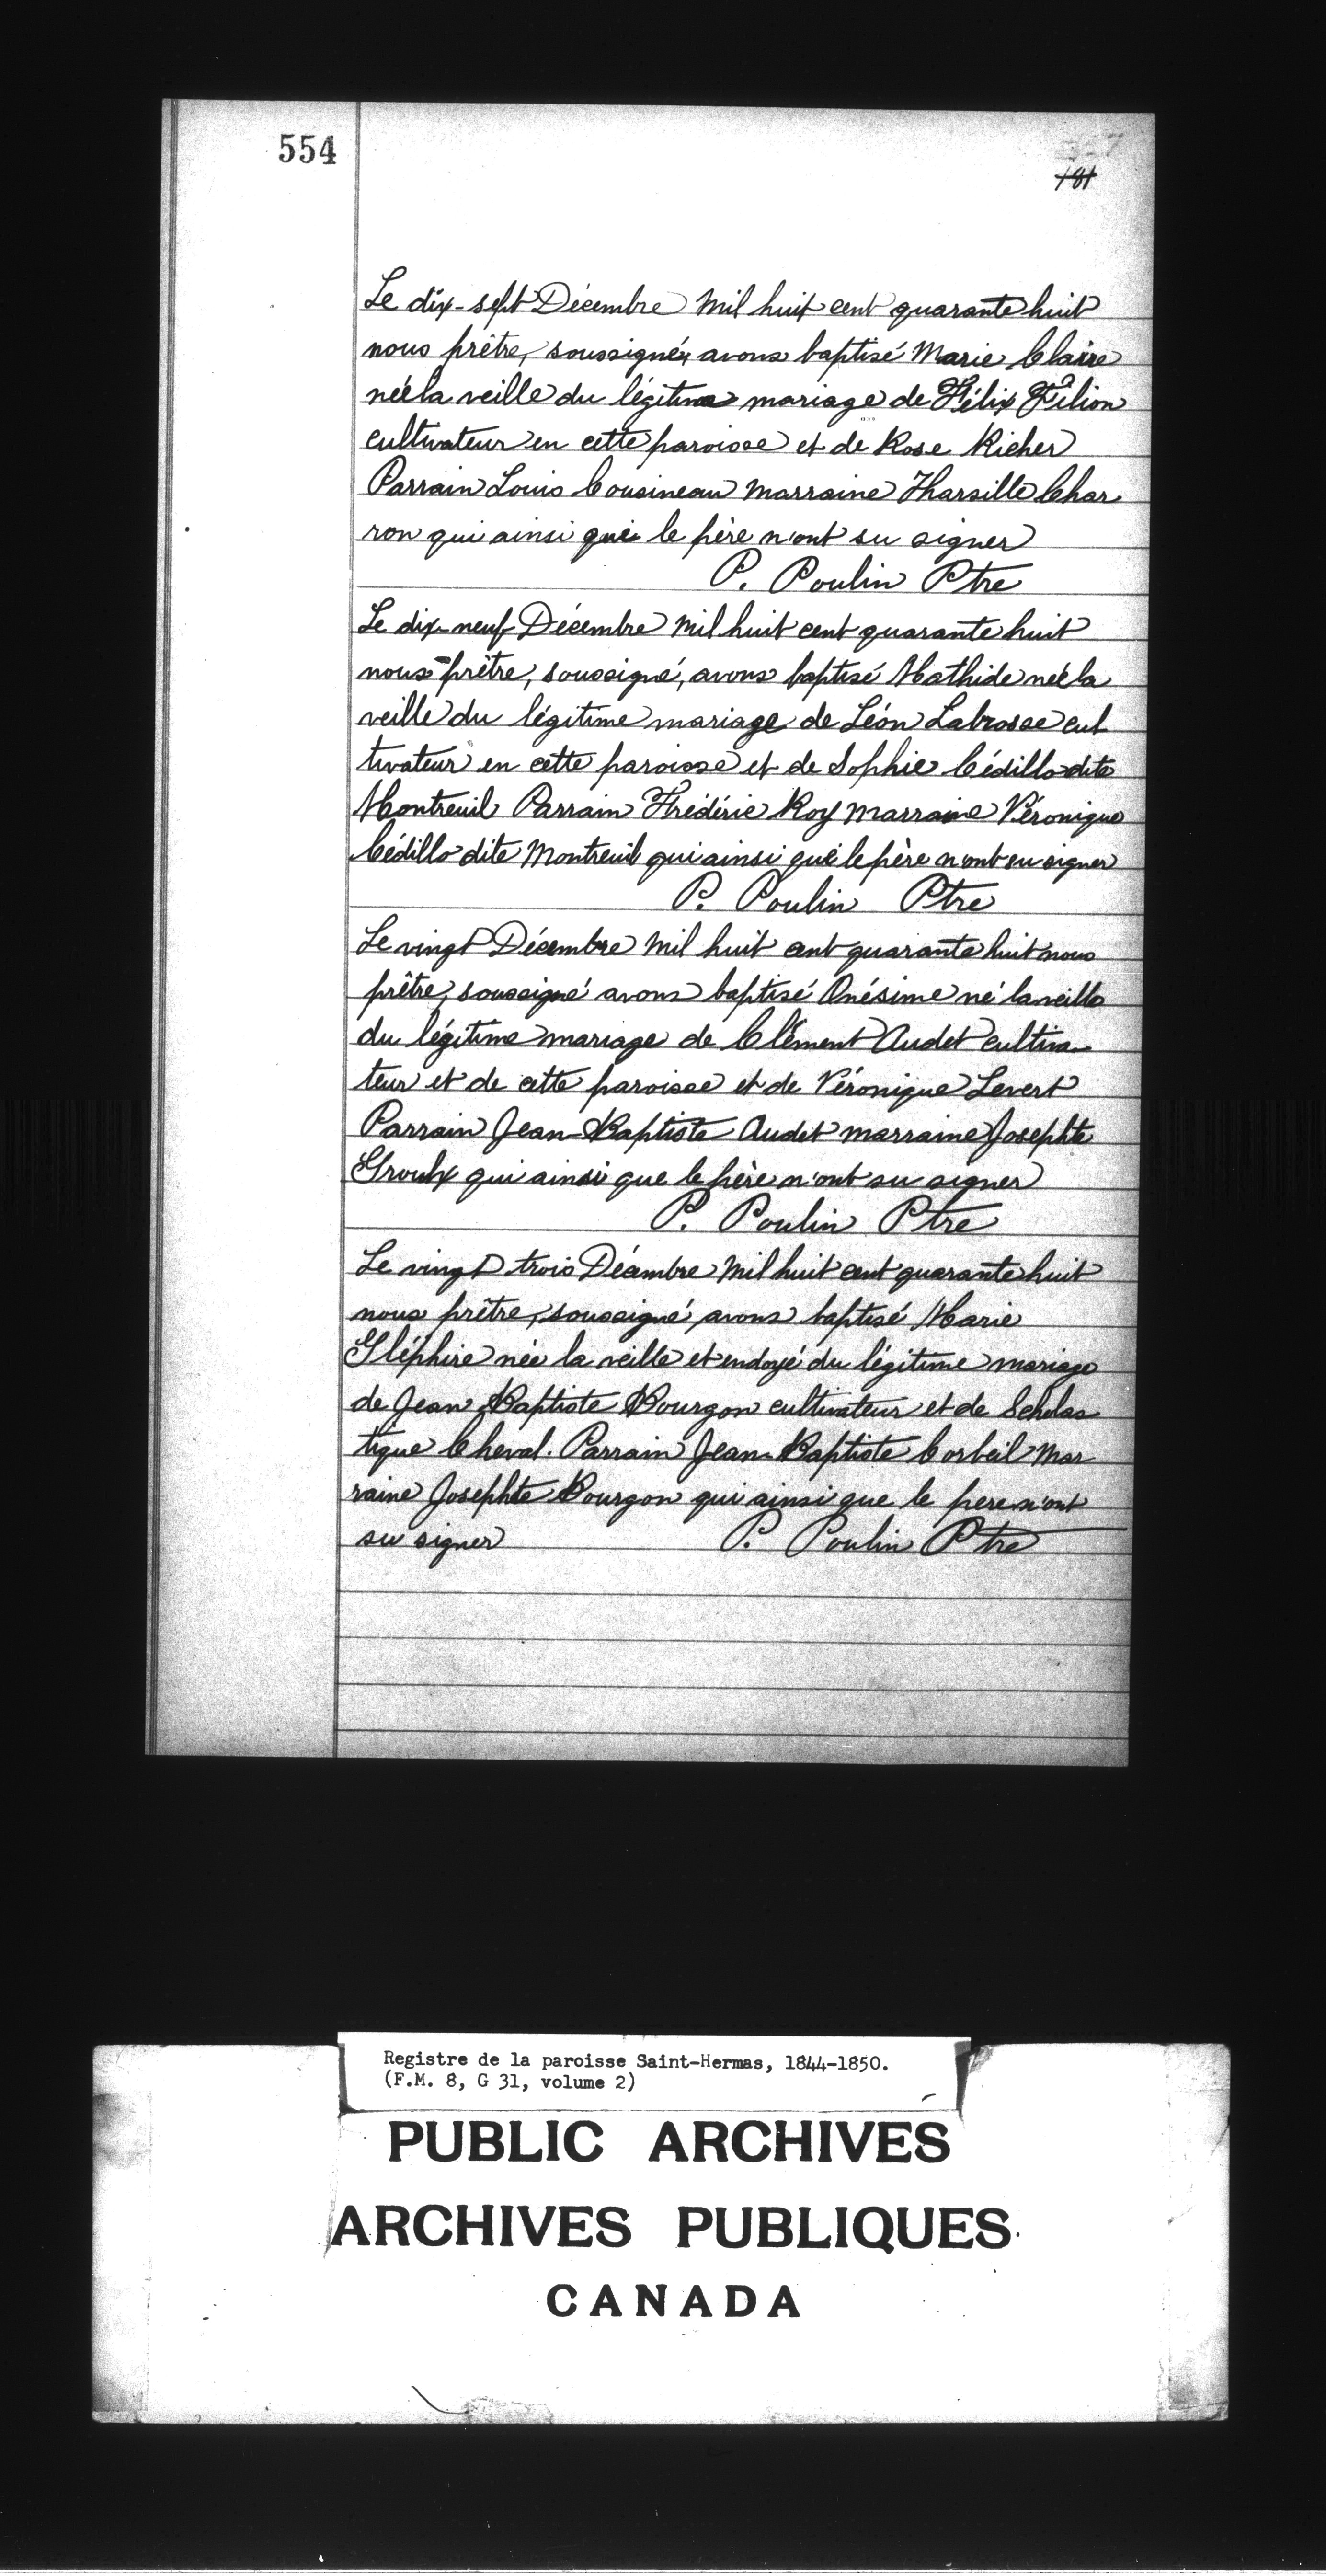 554
181
Le dix-sept Décembre mil huit cent quarante huit
nous prêtre, soussigné, avons baptisé Marie Claire
née la veille du légitime mariage de Félix Filion
cultivateur en cette paroisse et de Rose Richer
Parrain Louis Cousineau marraine Tharsille Char
ron qui ainsi que le père n'ont su signer
P. Poulin Ptre
Le dix-neuf Décembre mil huit cent quarante huit
nous prêtre, soussigné, avons baptisé Mathide née la
veille du légitime mariage de Léon Labrosse cul
tivateur en cette paroisse et de Sophie Cédillo dite
Montreuil Parrain Frédéric Roy marraine Véronique
Cédillo dite Montreuil qui ainsi que le père n'ont su signer
P. Poulin Ptre
Le vingt Décembre mil huit cent quarante huit nous
prêtre, soussigné avons baptisé Onésime né la veille
du légitime mariage de Clément Audet cultiva-
teur et de cette paroisse et de Véronique Levert
Parrain Jean-Baptiste Audet marraine Josephte
Groulx qui ainsi que le père n'ont su signer
P. Poulin Ptre
Le vingt trois Décembre mil huit cent quarante huit
nous prêtre, soussigné, avons baptisé Marie
Gléphire née la veille et endoyé du légitime mariage
de Jean Baptiste Bourgon cultivateur et de Scholas
tique Cheval. Parrain Jean-Baptiste Corbeil mar
raine Josephte Bourgon qui ainsi que le pere n'ont
su signer P. Poulin Ptre
Registre de la paroisse Saint-Hermas, 1844-1850.
(F.M. 8, G 31, volume 2)
PUBLIC ARCHIVES
ARCHIVES PUBLIQUES
CANADA